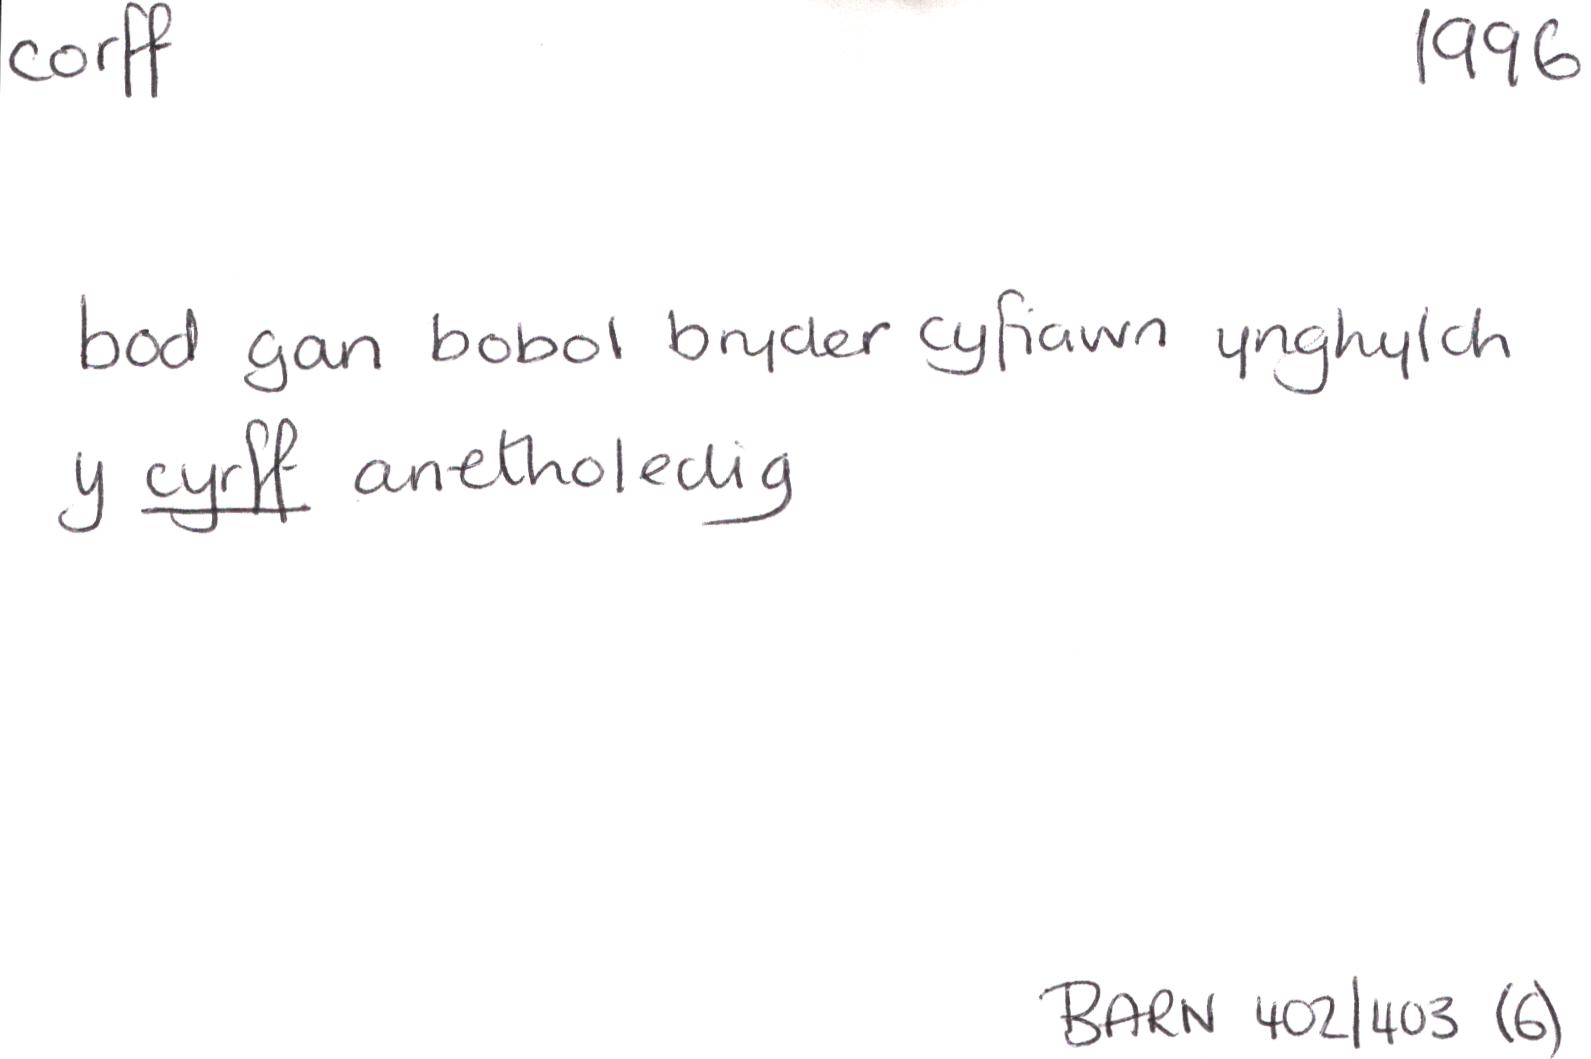 corff 1996
bod gan bobol bryder cyfiawn ynghylch
y cyrff anetholedig
BARN 402/403 (6)